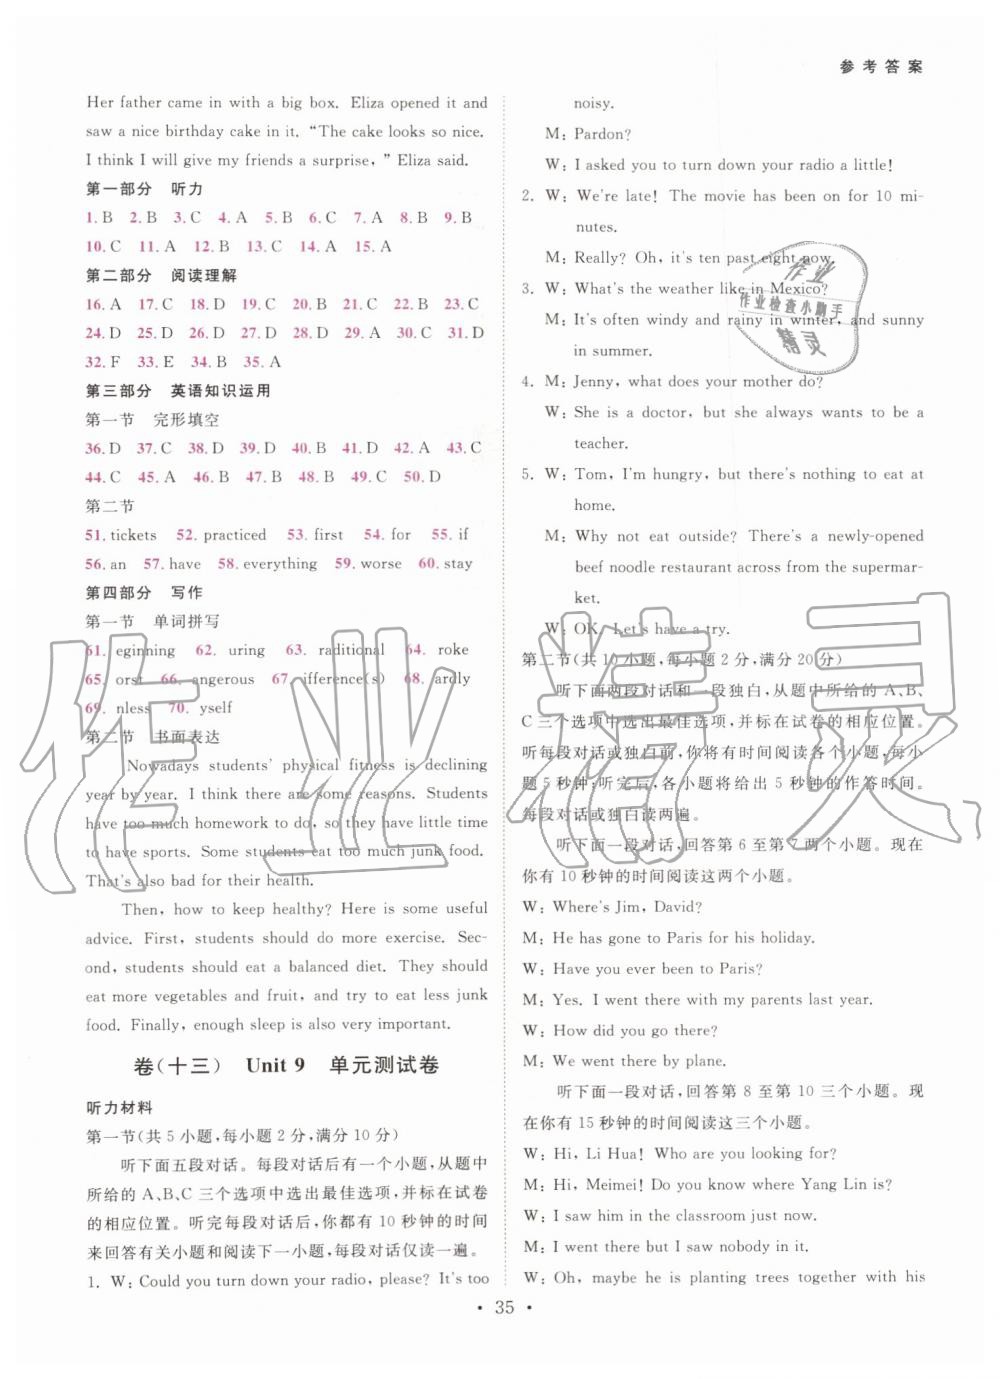 参考答案
Her father came in with a big box. Eliza opened it and
saw a nice birthday cake in it. “The cake looks so nice.
I think I will give my friends a surprise,” Eliza said.
第一部分 听力
1. B 2. B 3. C 4. A 5. B 6. C 7. A 8. B 9. B
10. C 11. A 12. B 13. C 14. A 15. A
第二部分 阅读理解
16. A 17. C 18. D 19. C 20. B 21. C 22. C 23. C
24. D 25. D 26. D 27. D 28. D 29. A 30. C 31. D
32. F 33. E 34. D 35. A
第三部分 英语知识运用
第一节 完形填空
36. D 37. C 38. D 39. D 40. B 41. B 42. A 43. C
44. C 45. A 46. B 47. B 48. A 49. C 50. D
第二节
51. tickets 52. practiced 53. first 54. for 55. if
56. an 57. have 58. everything 59. worse 60. stay
第四部分 写作
第一节 单词拼写
61. eginning 62. uring 63. raditional 64. roke
65. orst 66. angerous 67. ifference(s) 68. ardly
69. nless 70. yself
第二节 书面表达
Nowadays students’ physical fitness is declining
year by year. I think there are some reasons. Students
have too much homework to do, so they have little time
to have sports. Some students eat too much junk food.
That’s also bad for their health.
Then, how to keep healthy? Here is some useful
advice. First, students should do more exercise. Sec-
ond, students should eat a balanced diet. They should
eat more vegetables and fruit, and try to eat less junk
food. Finally, enough sleep is also very important.
卷(十三) Unit 9 单元测试卷
听力材料
第一节(共 5 小题,每小题 2 分,满分 10 分)
听下面五段对话。每段对话后有一个小题,从题中
所给的 A、B、C 三个选项中选出最佳选项,并标在试卷
的相应位置。听完每段对话后,你都有 10 秒钟的时间
来回答有关小题和阅读下一小题,每段对话仅读一遍。
1. W: Could you turn down your radio, please? It's too
noisy.
M: Pardon?
W: I asked you to turn down your radio a little!
2. W: We're late! The movie has been on for 10 mi-
nutes.
M: Really? Oh, it's ten past eight now.
3. W: What's the weather like in Mexico?
M: It's often windy and rainy in winter, and sunny
in summer.
4. M: Jenny, what does your mother do?
W: She is a doctor, but she always wants to be a
teacher.
5. W: Tom, I'm hungry, but there's nothing to eat at
home.
M: Why not eat outside? There's a newly-opened
beef noodle restaurant across from the supermar-
ket.
W: OK. Let's have a try.
第二节(共 10 小题,每小题 2 分,满分 20 分)
听下面两段对话和一段独白,从题中所给的 A、B、
C 三个选项中选出最佳选项,并标在试卷的相应位置。
听每段对话或独白前,你将有时间阅读各个小题,每小
题 5 秒钟;听完后,各小题将给出 5 秒钟的作答时间。
每段对话或独白读两遍。
听下面一段对话,回答第 6 至第 7 两个小题。现在
你有 10 秒钟的时间阅读这两个小题。
W: Where's Jim, David?
M: He has gone to Paris for his holiday.
W: Have you ever been to Paris?
M: Yes. I went there with my parents last year.
W: How did you go there?
M: We went there by plane.
听下面一段对话,回答第 8 至第 10 三个小题。现
在你有 15 秒钟的时间阅读这三个小题。
W: Hi, Li Hua! Who are you looking for?
M: Hi, Meimei! Do you know where Yang Lin is?
W: I saw him in the classroom just now.
M: I went there but I saw nobody in it.
W: Oh, maybe he is planting trees together with his
· 35 ·
作业
作业检查小助手
精灵
作业精灵